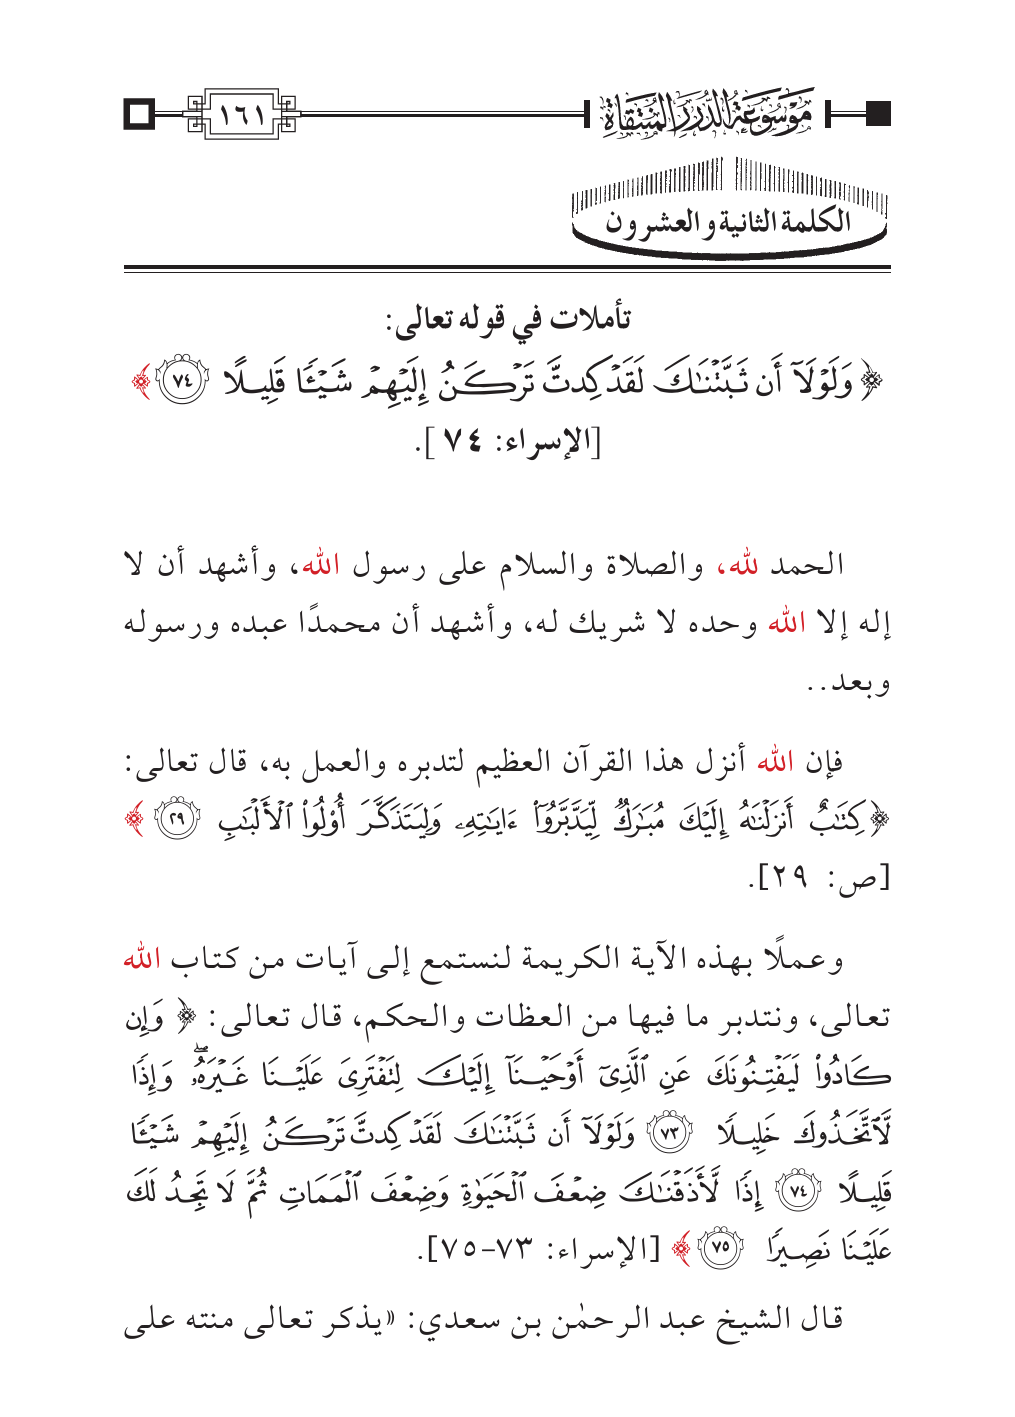 موسوعة الدرر المنتقاة
١٦١
الكلمة الثانية والعشرون
تأملات في قوله تعالى:
﴿وَلَوْلَآ أَن ثَبَّتْنَٰكَ لَقَدْ كِدتَّ تَرْكَنُ إِلَيْهِمْ شَيْـًٔا قَلِيلًا ٧٤﴾
[الإسراء: ٧٤].
الحمد لله، والصلاة والسلام على رسول الله، وأشهد أن لا
إله إلا الله وحده لا شريك له، وأشهد أن محمدًا عبده ورسوله
وبعد..
فإن الله أنزل هذا القرآن العظيم لتدبره والعمل به، قال تعالى:
﴿كِتَٰبٌ أَنزَلْنَٰهُ إِلَيْكَ مُبَٰرَكٌ لِّيَدَّبَّرُوٓا۟ ءَايَٰتِهِۦ وَلِيَتَذَكَّرَ أُو۟لُوا۟ ٱلْأَلْبَٰبِ ٢٩﴾
[ص: ٢٩].
وعملًا بهذه الآية الكريمة لنستمع إلى آيات من كتاب الله
تعالى، ونتدبر ما فيها من العظات والحكم، قال تعالى: ﴿وَإِن
كَادُوا۟ لَيَفْتِنُونَكَ عَنِ ٱلَّذِىٓ أَوْحَيْنَآ إِلَيْكَ لِتَفْتَرِىَ عَلَيْنَا غَيْرَهُۥ ۖ وَإِذًا
لَّٱتَّخَذُوكَ خَلِيلًا ٧٣ وَلَوْلَآ أَن ثَبَّتْنَٰكَ لَقَدْ كِدتَّ تَرْكَنُ إِلَيْهِمْ شَيْـًٔا
قَلِيلًا ٧٤ إِذًا لَّأَذَقْنَٰكَ ضِعْفَ ٱلْحَيَوٰةِ وَضِعْفَ ٱلْمَمَاتِ ثُمَّ لَا تَجِدُ لَكَ
عَلَيْنَا نَصِيرًا ٧٥﴾ [الإسراء: ٧٣-٧٥].
قال الشيخ عبد الرحمٰن بن سعدي: «يذكر تعالى منته على